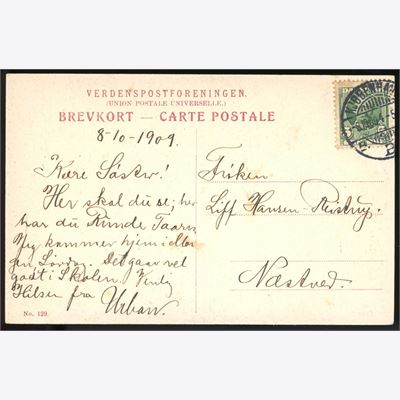 VERDENSPOSTFORENINGEN.
(UNION POSTALE UNIVERSELLE.)
BREVKORT — CARTE POSTALE
8-10-1909.
Kære Søster!
Her skal du se, her
har du Runde Taarn
Jeg kommer hjem
Lørdag. Det gaar vel
godt i Skolen. Venlig
Hilsen fra Urban.
Frøken
Hansen-Reistrup.
Næstved.
No. 129
KJØBENHAVN